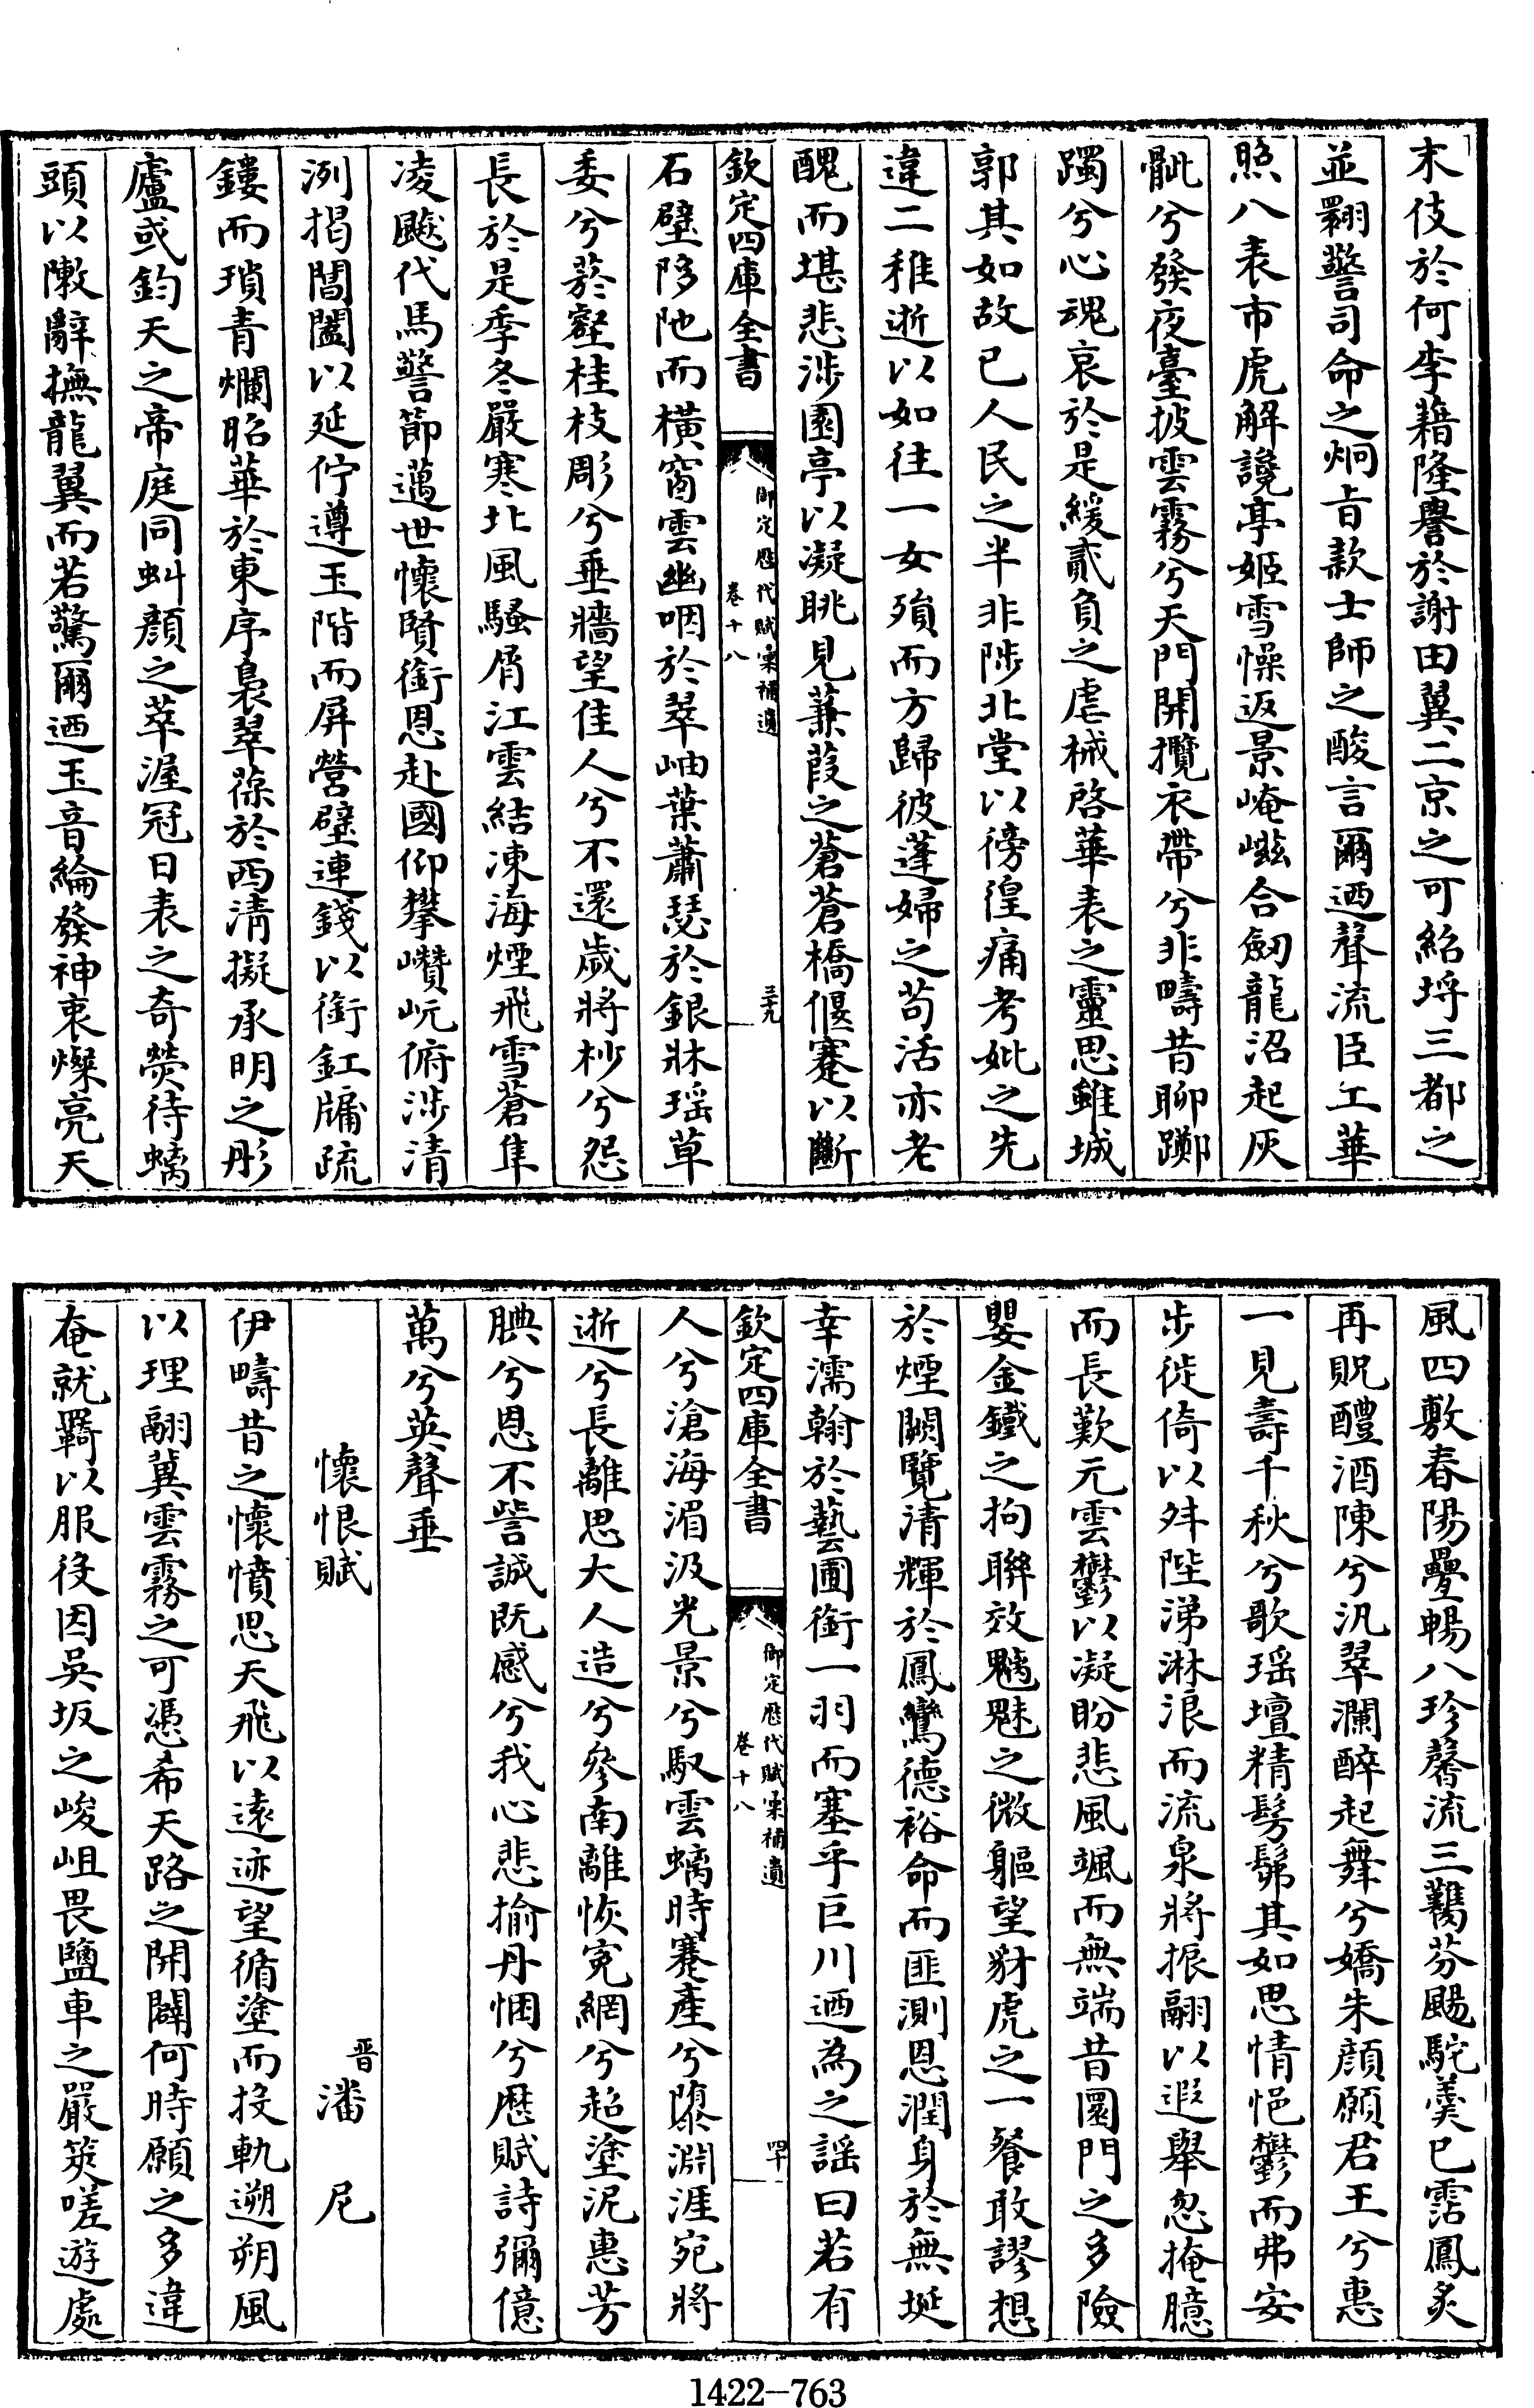 末伎於何李藉隆譽於謝田翼二京之可紹埒三都之
並翺警司命之炯㫖款士師之酸言爾迺聲流臣工華
照八表市虎解讒亭姬雪懆返景崦嵫合劔龍沼起灰
骴兮發夜臺披雲霧兮天門開攬衣帶兮非疇昔聊躑
躅兮心魂哀於是緩貳負之虐械啓華表之靈思雖城
郭其如故已人民之半非陟北堂以徬徨痛考妣之先
違二稚逝以如往一女殞而方歸彼蓬婦之茍活亦老
醜而堪悲涉園亭以凝眺見蒹葭之蒼蒼橋偃蹇以斷
欽定四庫全書
御定厯代賦彙補遺
卷十八
三十九
石壁陊阤而橫窗雲幽咽於翠岫葉蕭瑟於銀牀瑶草
委兮菸壑桂枝彫兮垂牆望佳人兮不還歲將杪兮怨
長於是季冬嚴寒北風騷屑江雲結凍海煙飛雪蒼隼
凌飈代馬警節邁世懷賢銜恩赴國仰攀巑岏俯涉清
洌揭閶闔以延佇遵玉階而屏營壁連錢以銜釭牖疏
鏤而瑣青爛昭華於東序裊翠葆於西清擬承明之彤
廬或鈞天之帝庭同虯顏之萃渥冠日表之奇熒待螭
頭以敶辭撫龍翼而若驚爾迺玉音綸發神衷燦亮天
風四敷春陽疊暢八珍馨流三鷊芬颺駝羮已霑鳳炙
再貺醴酒陳兮汎翠瀾醉起舞兮嬌朱顏願君王兮惠
一見壽千秋兮歌瑶壇精髣髴其如思情悒鬱而弗安
步徙倚以舛陛涕淋浪而流泉將振翮以遐舉忽掩臆
而長歎元雲鬱以凝盼悲風颯而無端昔圜門之多險
嬰金鐵之拘聯效魑魅之微軀望豺虎之一餐敢謬想
於煙闕覽清輝於鳳鸞德裕命而匪測恩潤身於無埏
幸濡翰於藝圃銜一羽而塞乎巨川迺為之謡曰若有
欽定四庫全書
御定厯代賦彙補遺
卷十八
四十
人兮滄海湄汲光景兮馭雲螭時蹇產兮隳淵涯宛將
逝兮長離思大人造兮參南離恢寃網兮起塗泥惠芳
腆兮恩不訾誠既感兮我心悲揄丹悃兮厯賦詩彌億
萬兮英聲垂
懷恨賦 晉潘尼
伊疇昔之懷憤思天飛以遠迹望循塗而投軌遡朔風
以理翮冀雲霧之可憑希天路之開闢何時願之多違
奄就羇以服役因吳坂之峻岨畏鹽車之嚴筴嗟遊處
1422—763